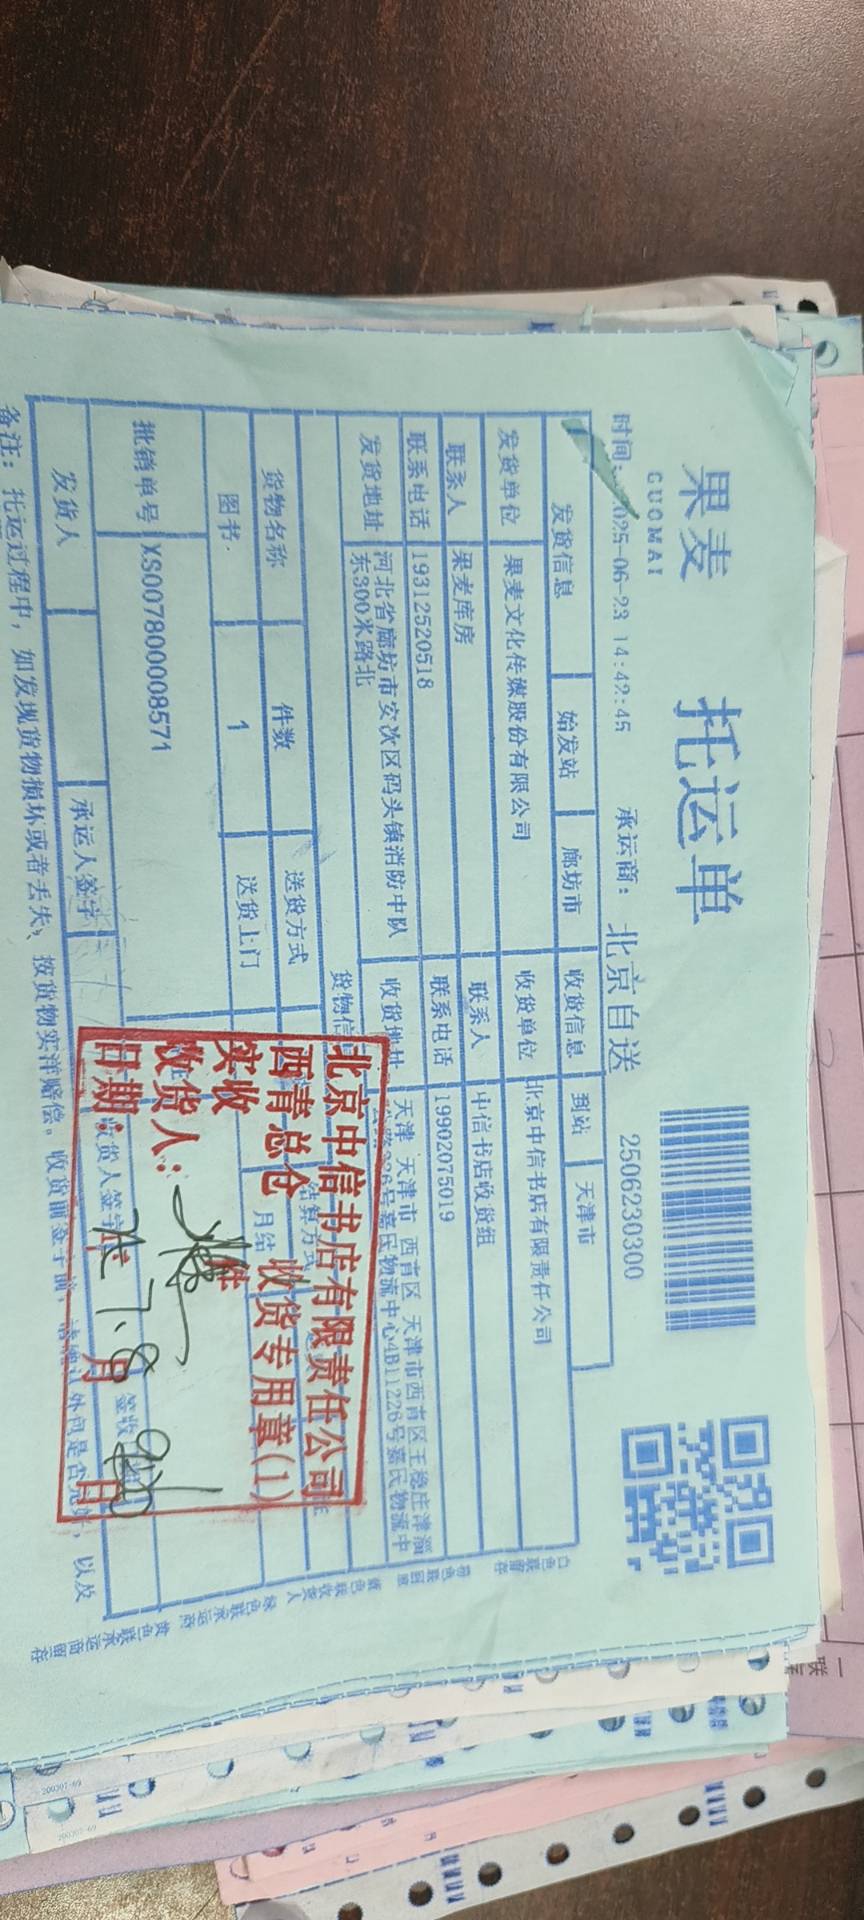 果麦
GUOMAI
托运单
时间：2025-06-23 14:42:45 承运商：北京自送 2506230300
发货信息 始发站 廊坊市 收货信息 到站 天津市
发货单位 果麦文化传媒股份有限公司 收货单位 北京中信书店有限责任公司
联系人 果麦库房 联系人 中信书店收货组
联系电话 19312520518 联系电话 19902075019
发货地址 河北省廊坊市安次区码头镇消防中队东300米路北 收货地址 天津 天津市 西青区 天津市西青区王稳庄津淄公路226号嘉民物流中心4B11226号嘉民物流中
货物信
货物名称 件数 送货方式 结算方式
图书 1 送货上门 月结
批销单号 XS007800008571
发货人 承运人签字 收货人签字 签收
备注：托运过程中，如发现货物损坏或者丢失，按货物实洋赔偿。收货前签字前，请确认外包是否完好，以及
白色联留存
粉色联回底
蓝色联收货人
绿色联承运商
黄色联承运商留存
北京中信书店有限责任公司
西青总仓 收货专用章(1)
实收 件
收货人：
日期： 年 7.8 月 日